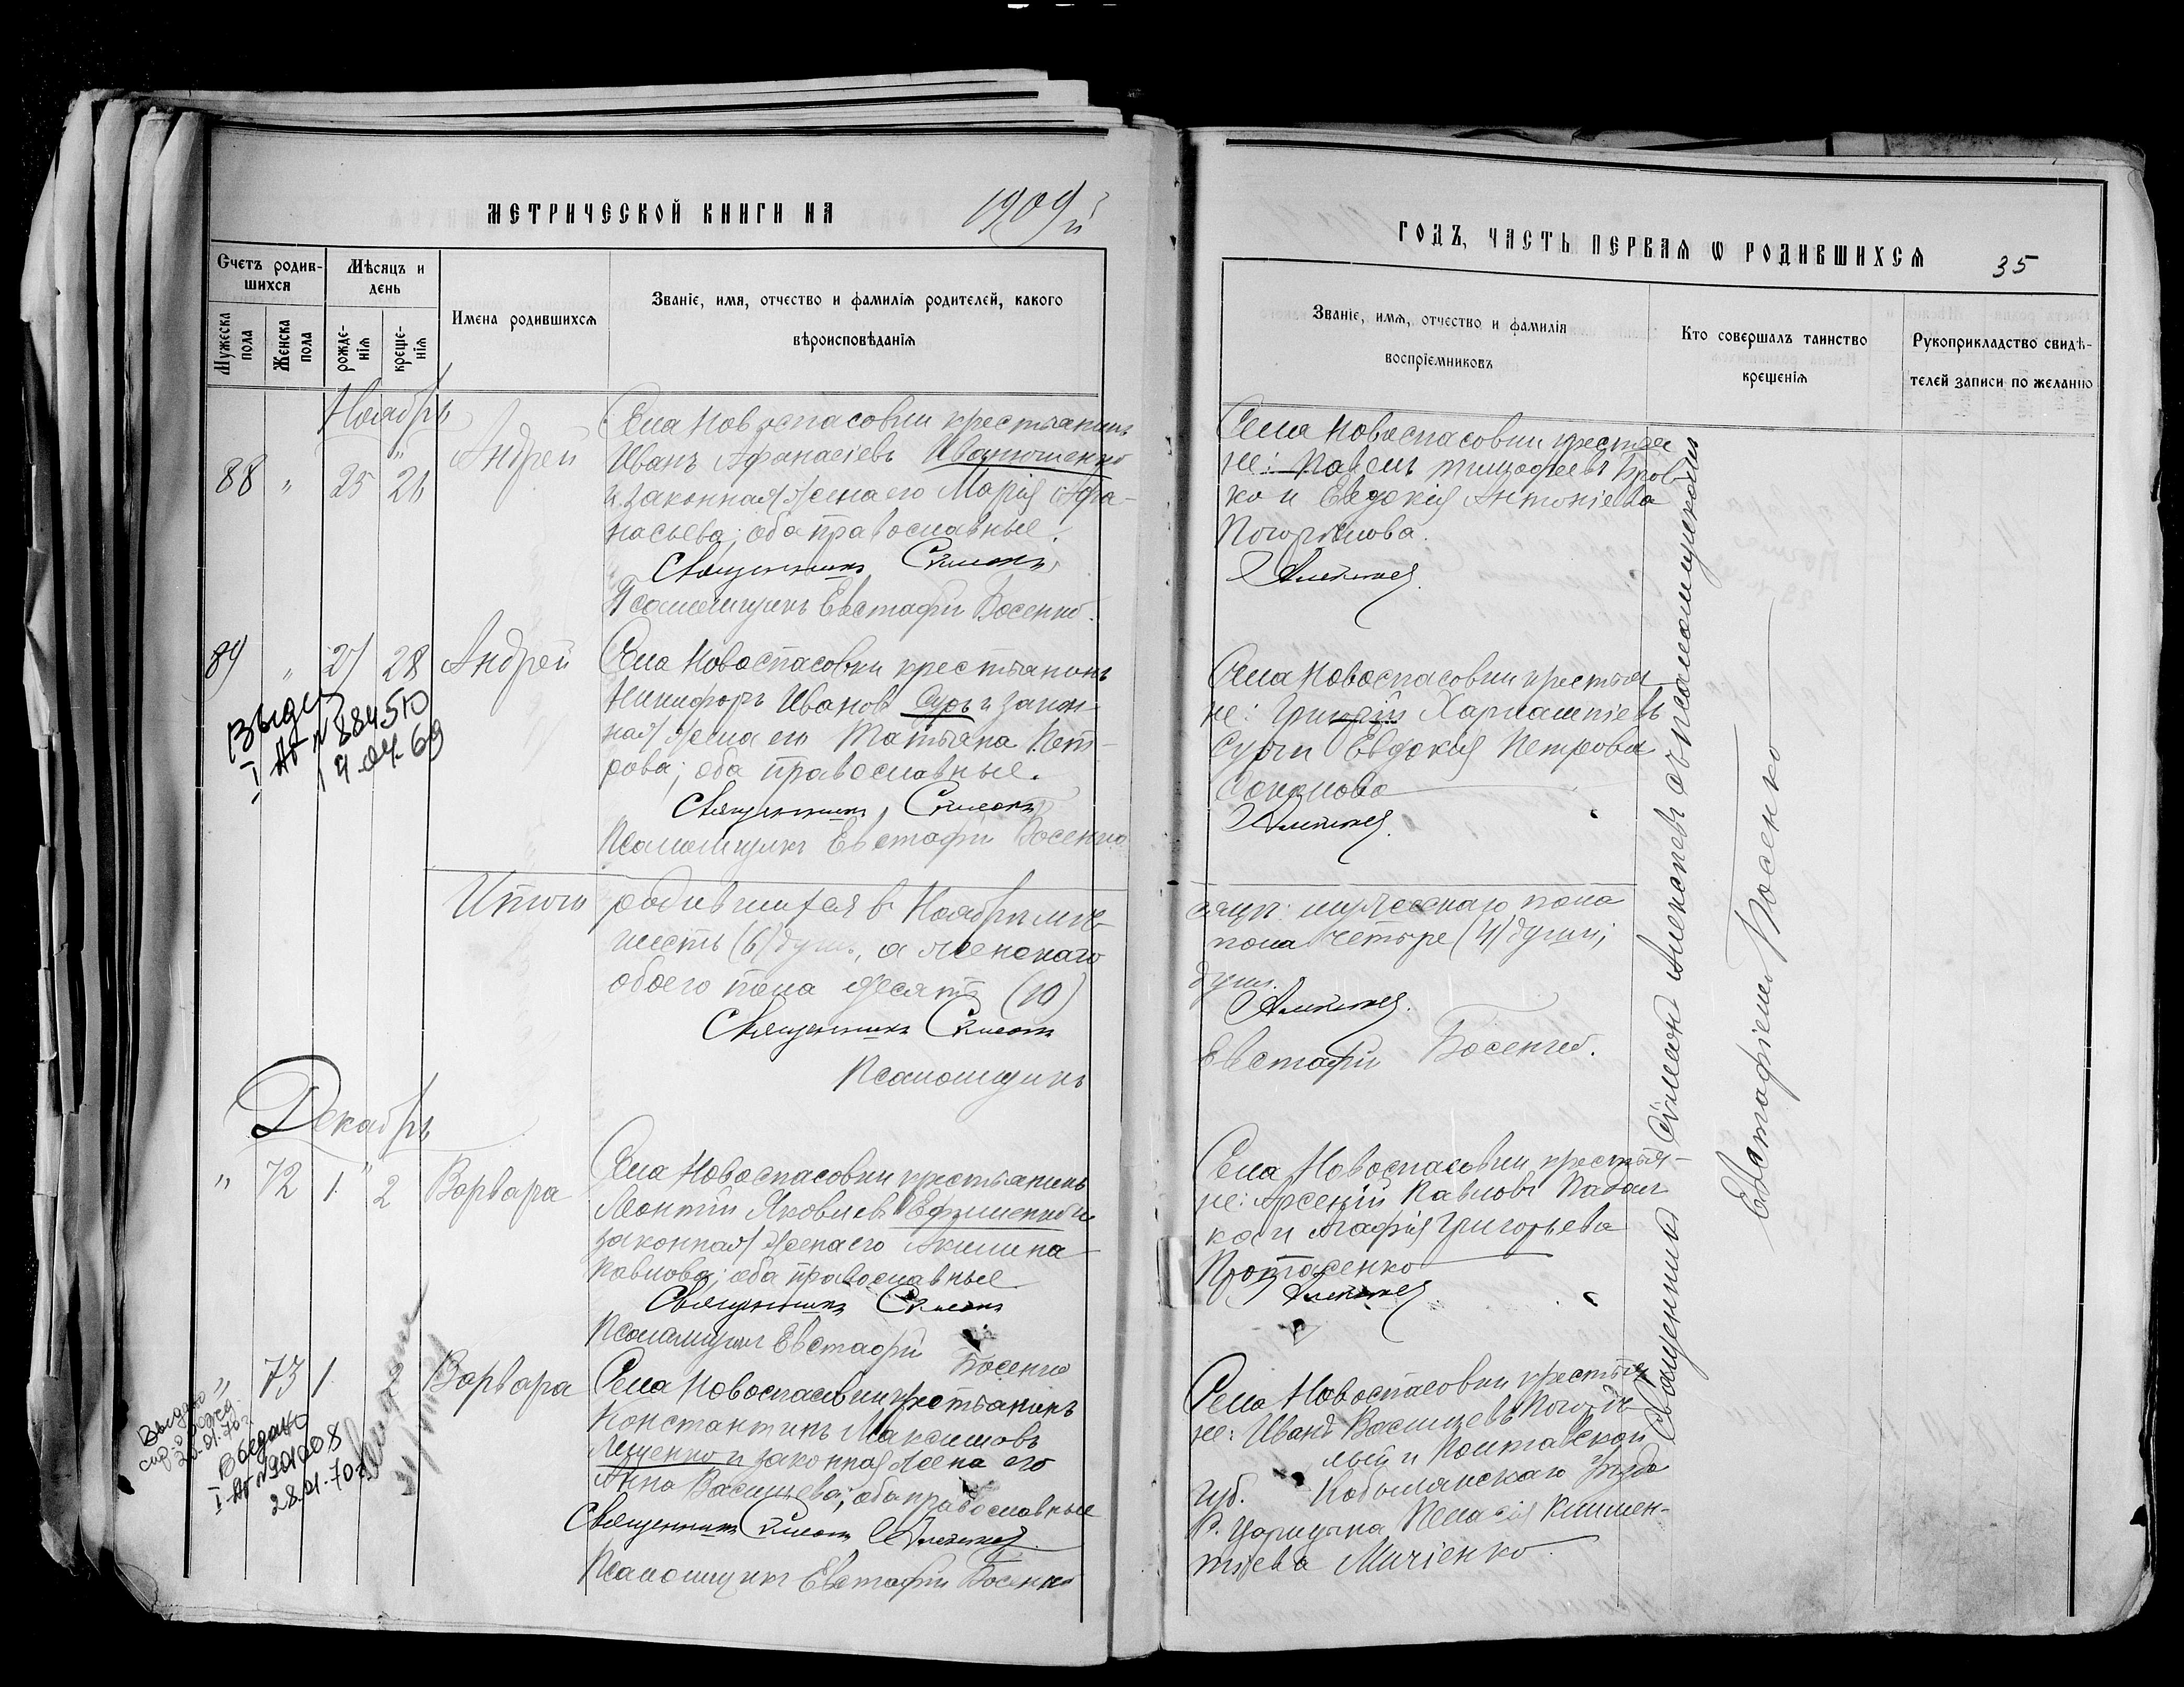 МЕТРИЧЕСКОЙ КНИГИ НА 1909й
Счетъ родив-
шихся
Мѣсяцъ и
день
Мужеска
пола
Женска
пола
рожде-
нія
креще-
нія
Имена родившихся
Званіе, имя, отчество и фамилія родителей, какого
вѣроисповѣданія
Ноябрь
88 " 25 26 Андрей
Села Новоспасовки крестьянинъ
Иванъ Афанасіевъ Иванющенко
и законная жена его Марія Афа-
насьева; оба православные.
Священникъ Симеонъ
Псаломщикъ Евстафій Босенко.
89 " 27 28 Андрей
Села Новоспасовки крестьянинъ
Никифоръ Ивановъ Суръ и закон-
ная жена его Татьяна Пет-
рова; оба православные.
Священникъ Симеонъ
Псаломщикъ Евстафій Босенко
I АГ № 884510
14.04.69
Итого родившихся въ Ноябрѣ мѣ-
шесть (6) душъ, а женскаго
обоего пола десять (10)
Священникъ Симеонъ
Псаломщикъ
Декабрь
" 72 1 2 Варвара
Села Новоспасовки крестьянинъ
Леонтій Яковлевъ Ефименко и
законная жена его Акилина
Павлова; оба православные
Священникъ Симеонъ
Псаломщикъ Евстафій
Босенко
" 73 1 2 Варвара
Села Новоспасовки крестьянинъ
Константинъ Максимовъ
Лященко и законная жена его
Анна Васильева; оба православные
Священникъ Симеонъ
Псаломщикъ Евстафій Босенко
Выдано
28.01.70г.
ГОДЪ, ЧАСТЬ ПЕРВАЯ Ѡ РОДИВШИХСЯ 35
Званіе, имя, отчество и фамилія
воспріемниковъ
Кто совершалъ таинство
крещенія
Рукоприкладство свидѣ-
телей записи по желанію
Села Новоспасовки крестья
не: Павелъ Тимофеевъ Бров-
ко и Евдокія Антоніева
Погорѣлова.
Села Новоспасовки крестья
не: Григорій Харлампіевъ
Суръ и Евдокія Петрова
сяцѣ: мужескаго пола
пола четыре (4) души;
душъ.
Евстафій Босенко.
Села Новоспасовки крестья-
не: Арсеній Павловъ Падал
ка и Агафія Григорьева
Протасенко
Села Новоспасовки крестья
не: Иванъ Васильевъ Погорѣ-
лый и Полтавской
губ. Кобылякскаго уѣзда
Пелагія Климен-
тіева
Священникъ Симеонъ съ псаломщикомъ
Евстафіемъ Босенко